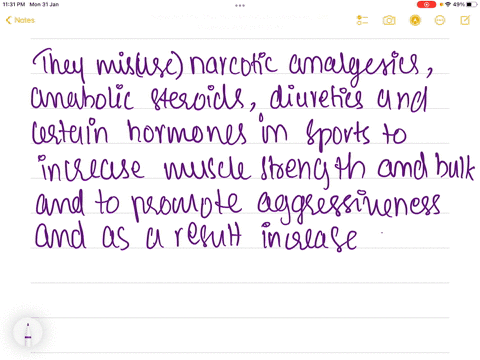 11:31 PM Mon 31 Jan
49%
Notes
They mis(use) narcotic analgesics,
anabolic steroids, diuretics and
certain hormones in sports to
increase muscle strength and bulk
and to promote aggressiveness
and as a result increase